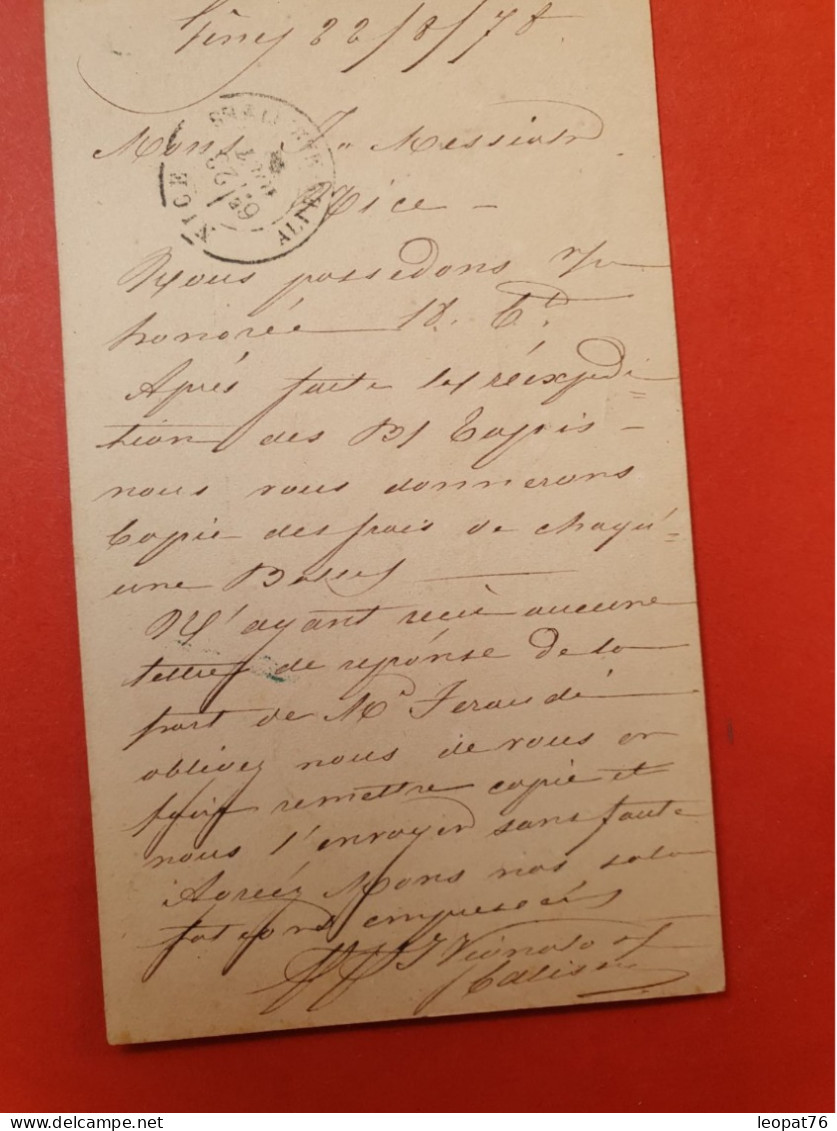 Gênes 22/8/78.
Mons J. Messiah
Nice -
NICE
Nous possedons v/
honorée 18. Ct.
Après faite la réexpedi=
tion des B/ Tapis -
nous vous donnerons
Copie des frais de chaqu=
une Balles
N'ayant reçu aucune
lettre de reponse de la
part de Mr Feraud
obligez nous de vous en
faire remettre copie et
nous l'envoyer sans faute
Agréez Mons nos salu
tations empressées
leopat76